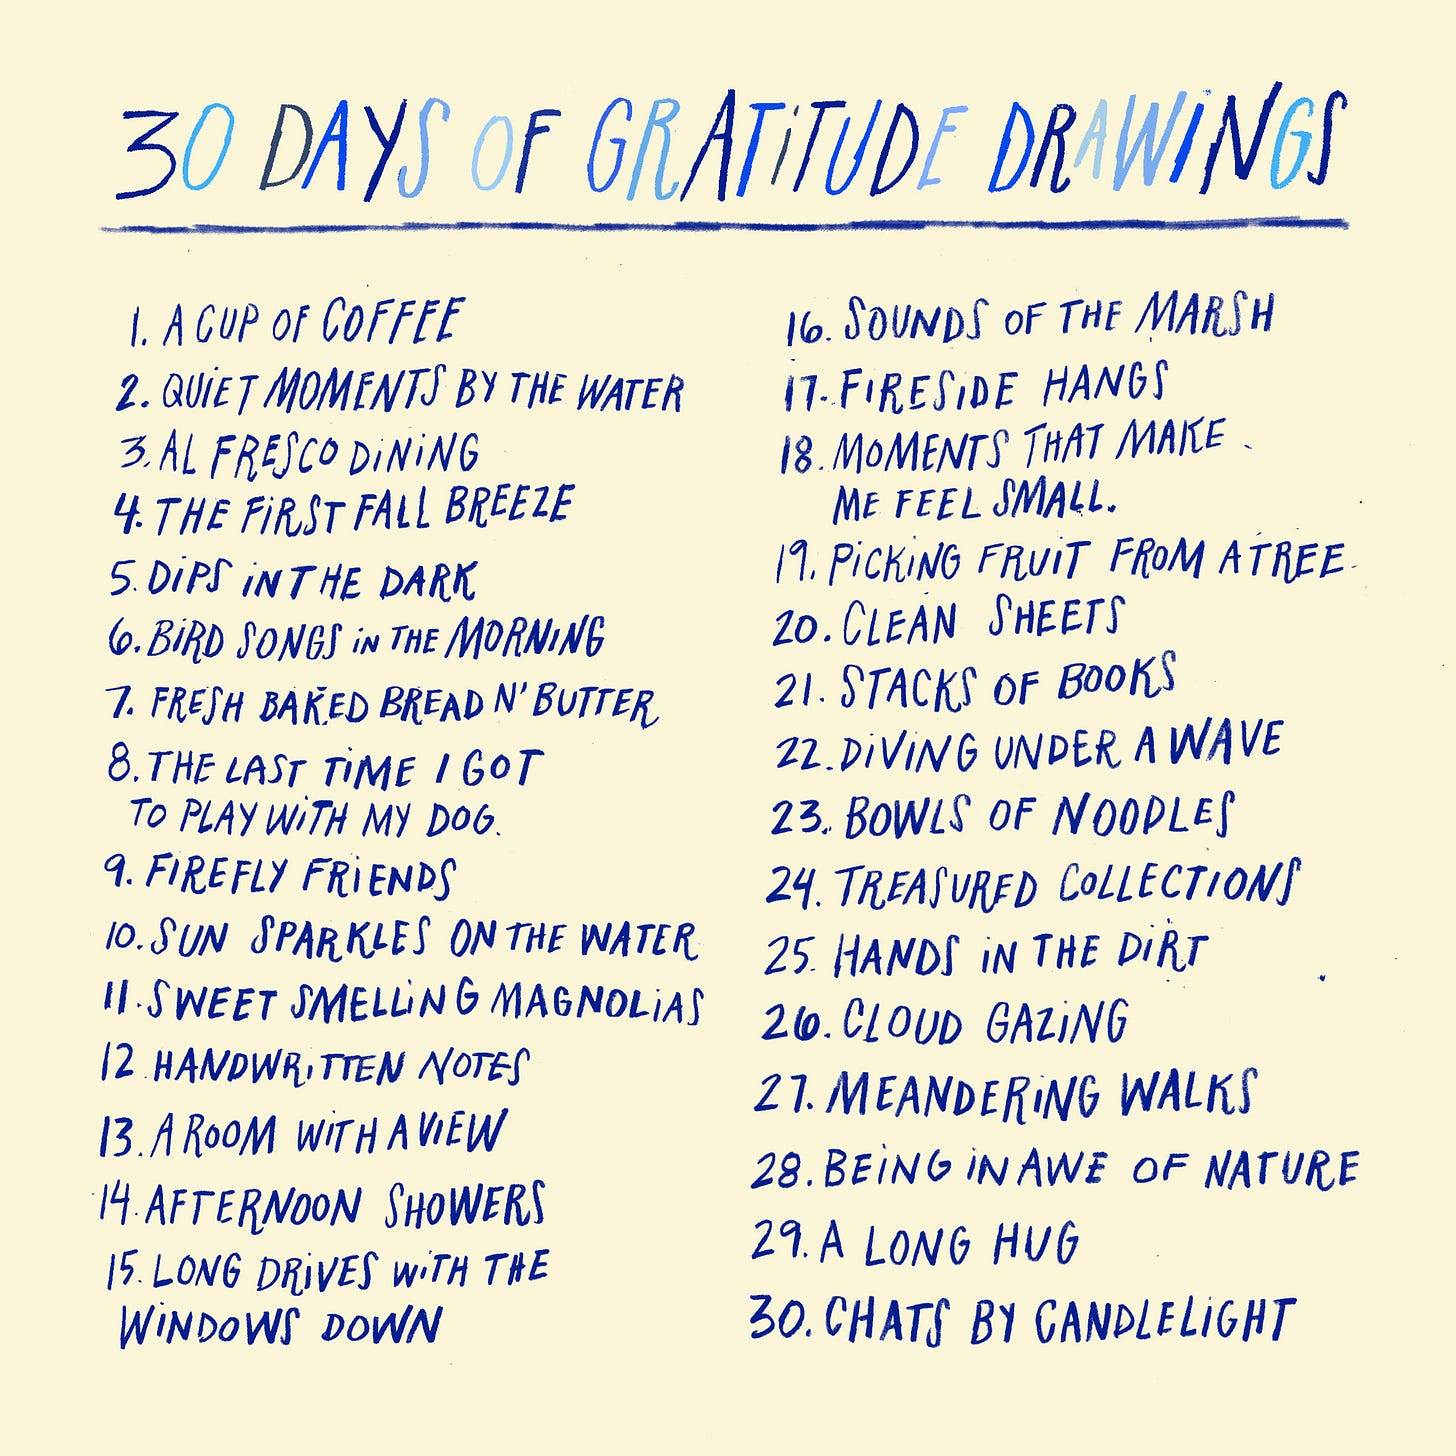 30 DAYS OF GRATiTUDE DRAWiNGS
1. A CUP OF COFFEE
2. QUiET MOMENTS BY THE WATER
3. AL FRESCO DiNiNG
4. THE FiRST FALL BREEZE
5. DiPS iN THE DARK
6. BiRD SONGS iN THE MORNiNG
7. FRESH BAKED BREAD N' BUTTER
8. THE LAST TiME I GOT
TO PLAY WiTH MY DOG.
9. FIREFLY FRiENDS
10. SUN SPARKLES ON THE WATER
11. SWEET SMELLiNG MAGNOLiAS
12. HANDWRiTTEN NOTES
13. A ROOM WiTH A ViEW
14. AFTERNOON SHOWERS
15. LONG DRiVES WiTH THE
WiNDOWS DOWN
16. SOUNDS OF THE MARSH
17. FIRESiDE HANGS
18. MOMENTS THAT MAKE
ME FEEL SMALL.
19. PiCKiNG FRUiT FROM A TREE
20. CLEAN SHEETS
21. STACKS OF BOOKS
22. DiViNG UNDER A WAVE
23. BOWLS OF NOODLES
24. TREASURED COLLECTIONS
25. HANDS iN THE DiRT
26. CLOUD GAZiNG
27. MEANDERiNG WALKS
28. BEiNG iN AWE OF NATURE
29. A LONG HUG
30. CHATS BY CANDLELiGHT